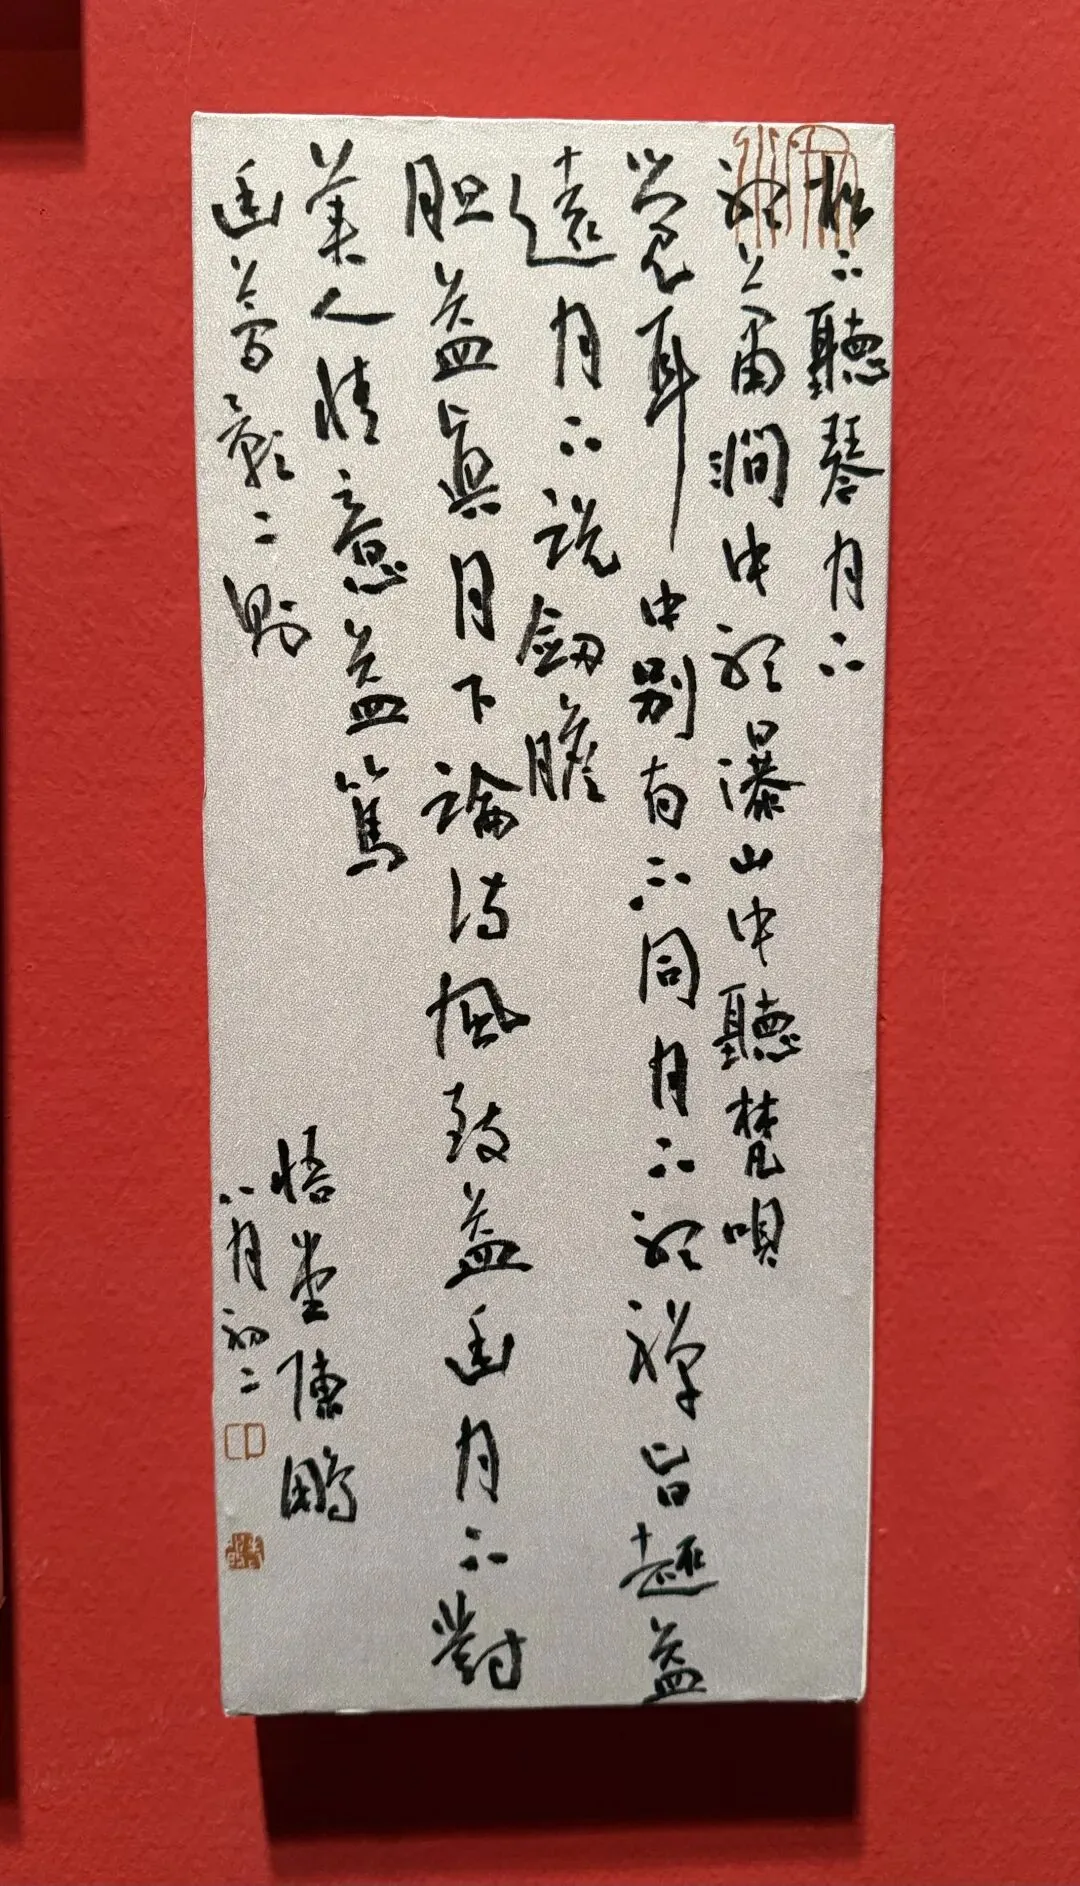 松下聽琴月下
聽簫澗中聽瀑山中聽梵唄
覺耳中別有不同月下聽禪旨趣益
遠月下說劍膽
胆益真月下論詩風致益幽月下對
美人情意益篤
幽夢影二則
悟堂陳鵬
八月初二